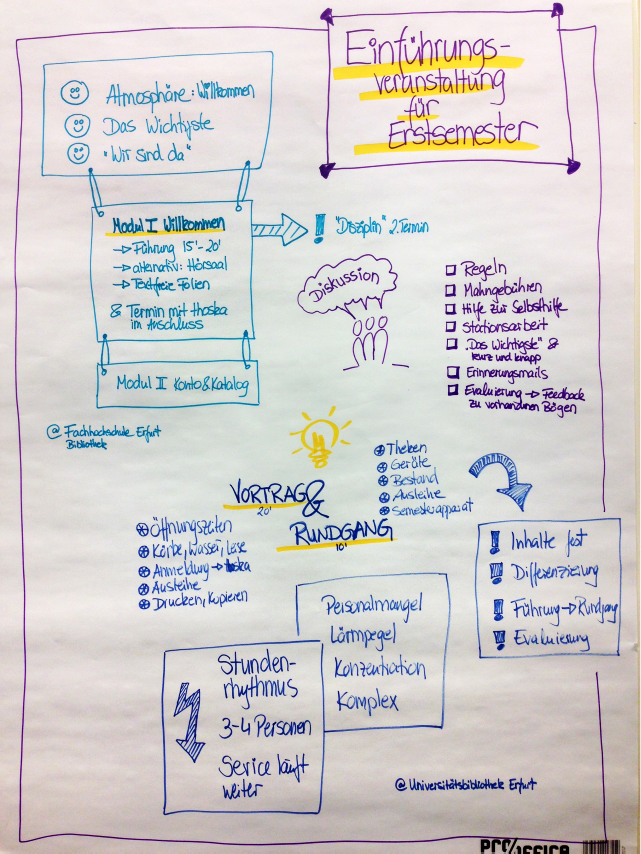 Einführungs-
veranstaltung
für
Erstsemester
Atmosphäre: Willkommen
Das Wichtigste
"Wir sind da"
Modul I Willkommen
→ Führung 15'-20'
→ alternativ: Hörsaal
→ Textfreie Folien
& Termin mit thoska
im Anschluss
! "Disziplin" 2. Termin
Modul II Konto & Katalog
@ Fachhochschule Erfurt
Bibliothek
Diskussion
Regeln
Mahngebühren
Hilfe zur Selbsthilfe
Stationsarbeit
"Das Wichtigste" &
kurz und knapp
Erinnerungsmails
Evaluierung → Feedback
zu vorhandenen Bögen
VORTRAG &
20'
RUNDGANG
10'
Öffnungszeiten
Körbe, Wasser, Lese
Anmeldung → thoska
Ausleihe
Drucken, Kopieren
Theken
Geräte
Bestand
Ausleihe
Semesterapparat
! Inhalte fest
!!! Differenzierung
! Führung → Rundgang
!! Evaluierung
Personalmangel
Lärmpegel
Konzentration
Komplex
Stunden-
rhythmus
3-4 Personen
Service läuft
weiter
@ Universitätsbibliothek Erfurt